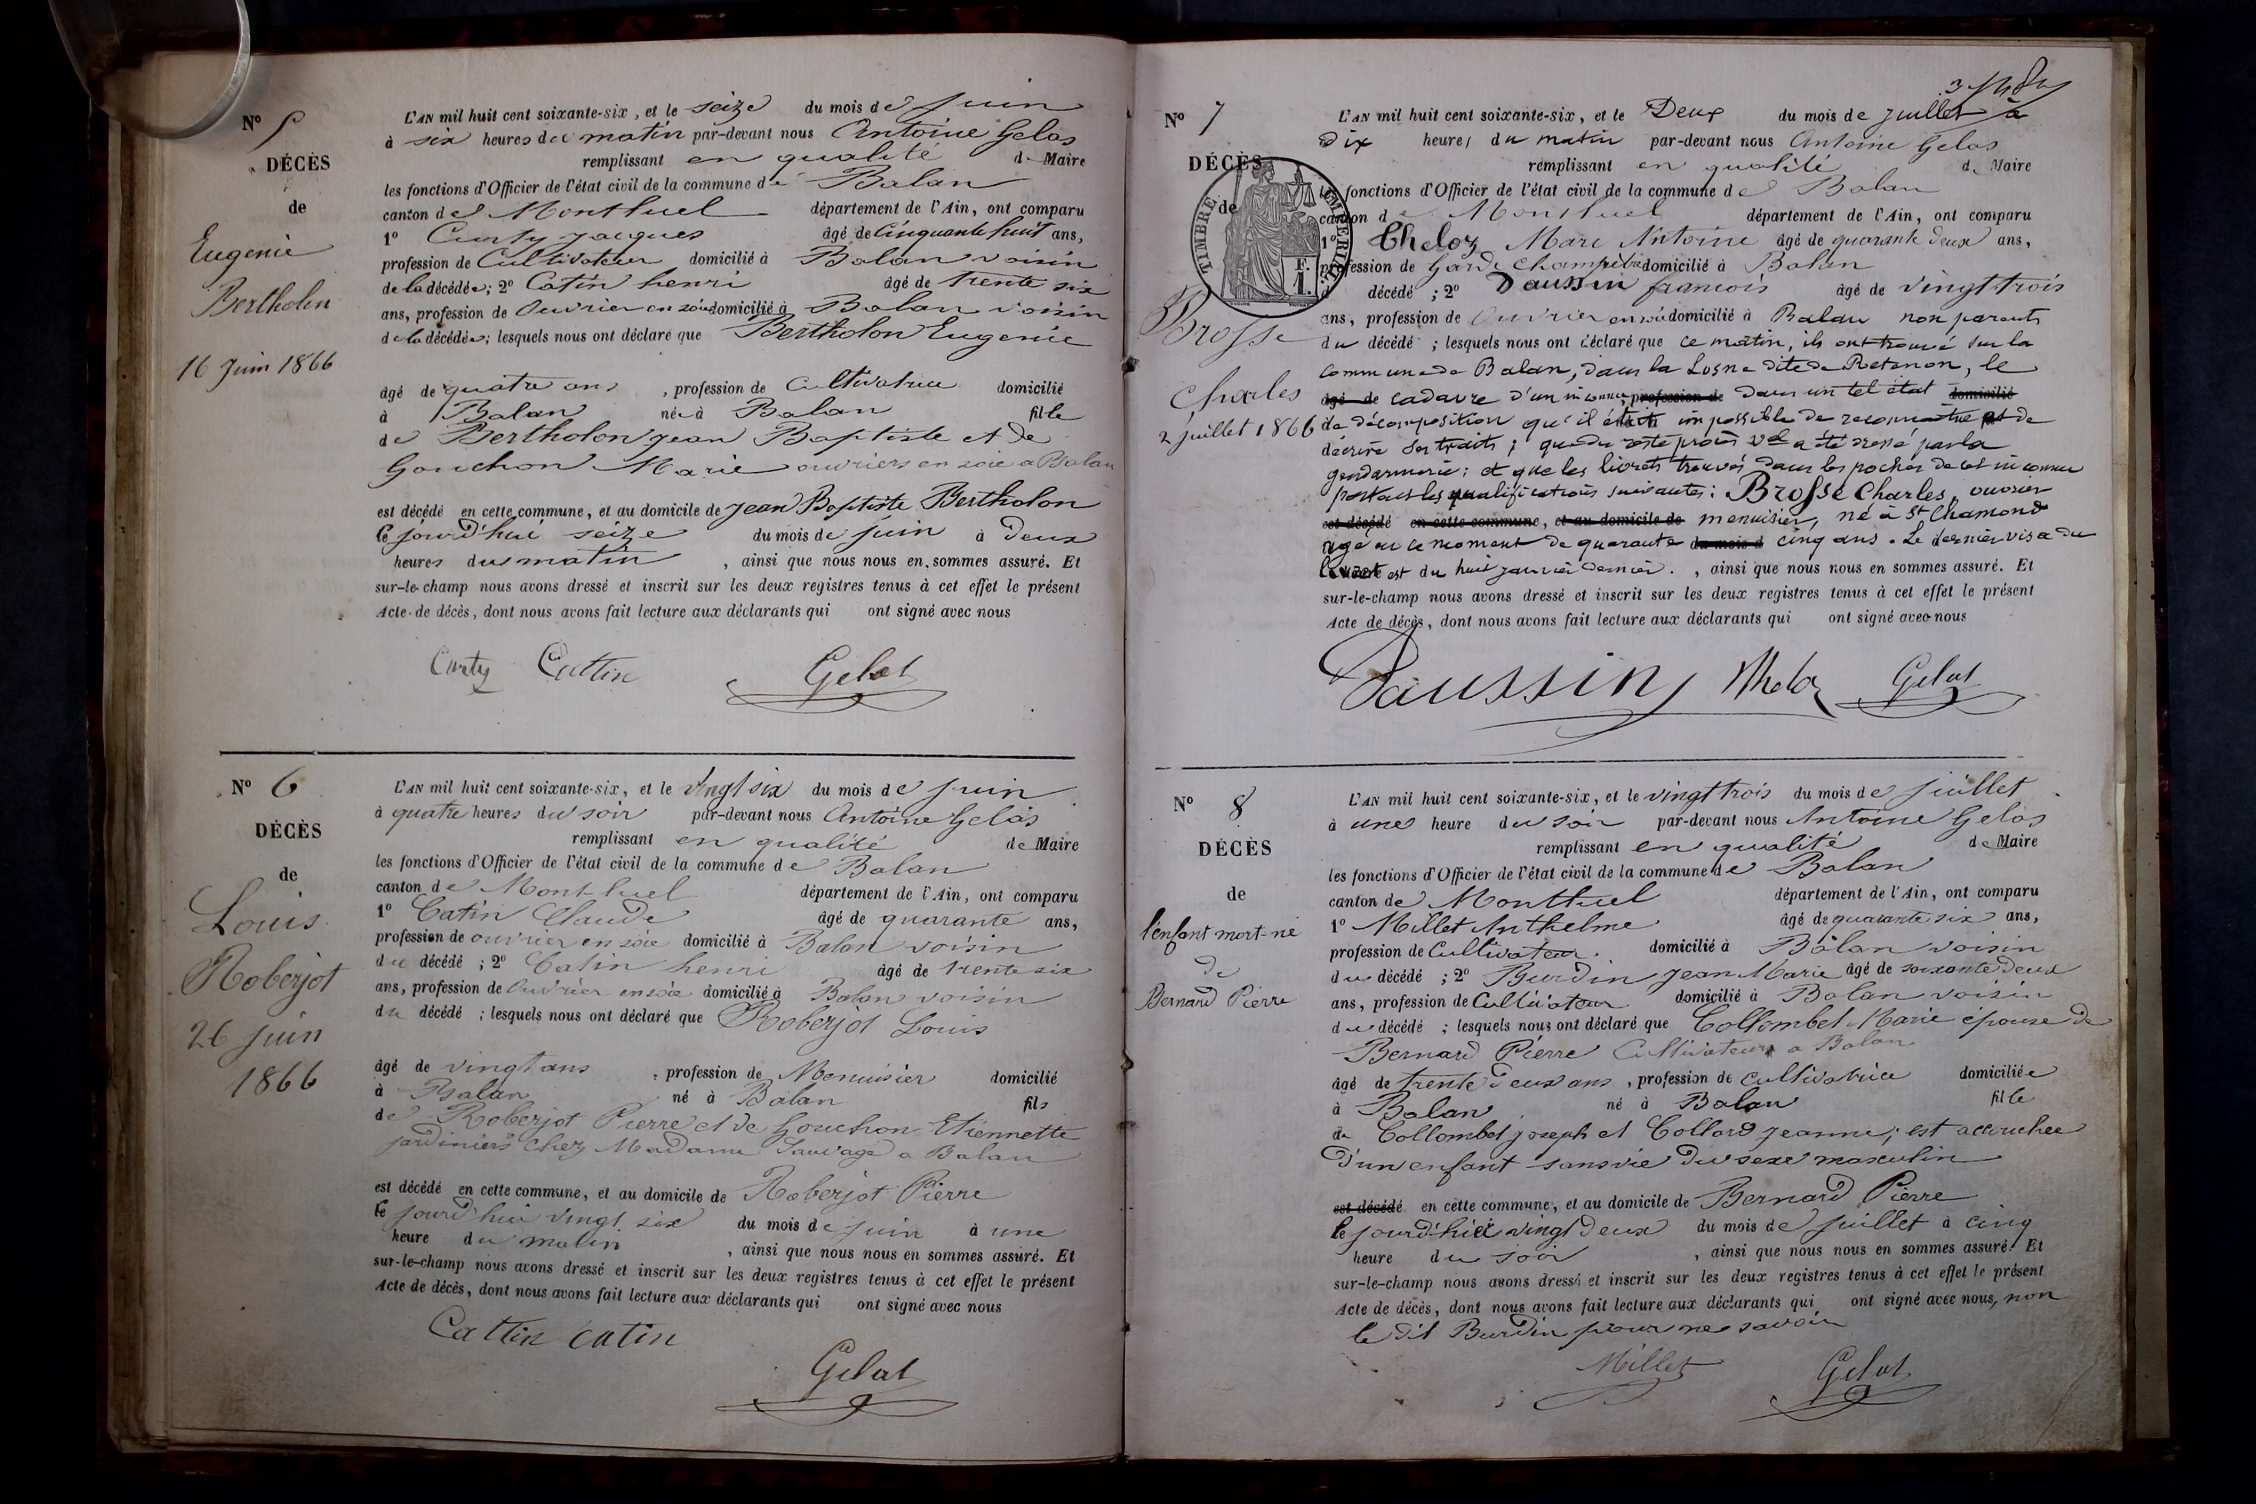 No 5
DÉCÈS
de
Eugenie
Bertholon
16 Juin 1866
L'AN mil huit cent soixante-six, et le seize du mois de juin
à six heures du matin par-devant nous Antoine Gelas
remplissant en qualité de Maire
les fonctions d'Officier de l'état civil de la commune de Balan
canton de Montluel département de l'Ain, ont comparu
1° Curty Jacques âgé de Cinquante huit ans,
profession de Cultivateur domicilié à Balan voisin
de la décédée; 2° Catin henri âgé de trente six
ans, profession de Ouvrier en soie domicilié à Balan voisin
de la décédée; lesquels nous ont déclaré que Bertholon Eugenie
âgé de quatre ans, profession de Cultivatrice domicilié
à Balan née à Balan fille
de Bertholon jean Baptiste et de
Gouchon Marie ouvriers en soie a Balan
est décédé en cette commune, et au domicile de jean Baptiste Bertholon
le jourd'hui seize du mois de juin à Deux
heures du matin, ainsi que nous nous en sommes assuré. Et
sur-le-champ nous avons dressé et inscrit sur les deux registres tenus à cet effet le présent
Acte de décès, dont nous avons fait lecture aux déclarants qui ont signé avec nous
Curty Cattin Gelas
No 6
DÉCÈS
de
Louis
Roberjot
26 juin
1866
L'AN mil huit cent soixante-six, et le vingt six du mois de juin
à quatre heures du soir par-devant nous Antoine Gelas
remplissant en qualité de Maire
les fonctions d'Officier de l'état civil de la commune de Balan
canton de Montluel département de l'Ain, ont comparu
1° Catin Claude âgé de quarante ans,
profession de ouvrier en soie domicilié à Balan voisin
du décédé; 2° Catin henri âgé de trente six
ans, profession de Ouvrier en soie domicilié à Balan voisin
du décédé; lesquels nous ont déclaré que Roberjot Louis
âgé de vingt ans, profession de Menuisier domicilié
à Balan né à Balan fils
de Roberjot Pierre et de Gouchon Etiennette
jardiniers chez Madame Sauvage a Balan
est décédé en cette commune, et au domicile de Roberjot Pierre
le jourd'hui vingt six du mois de juin à une
heure du matin, ainsi que nous nous en sommes assuré. Et
sur-le-champ nous avons dressé et inscrit sur les deux registres tenus à cet effet le présent
Acte de décès, dont nous avons fait lecture aux déclarants qui ont signé avec nous
Cattin catin
Gelas
No 7
DÉCÈS
de
TIMBRE IMPERIAL
F. 1.
Brosse
Charles
2 juillet 1866
L'AN mil huit cent soixante-six, et le Deux du mois de juillet à
dix heures du matin par-devant nous Antoine Gelas
remplissant en qualité de Maire
les fonctions d'Officier de l'état civil de la commune de Balan
canton de Montluel département de l'Ain, ont comparu
1° Cheloz Marc Antoine âgé de quarante deux ans,
profession de Garde Champêtre domicilié à Balan
décédé; 2° Daussin francois âgé de vingt trois
ans, profession de Ouvrier en soie domicilié à Balan non parents
du décédé; lesquels nous ont déclaré que ce matin, ils ont trouvé sur la
commune de Balan, dans la Losne dite de Retenon, le
âgé de cadavre d'un inconnu, profession de dans un tel état domicilié
de décomposition qu'il était impossible de reconnaître et de
décrire ses traits; que du reste procès val a été dressé par la
gendarmerie; et que les livrets trouvés dans les poches de cet inconnu
portant les qualifications suivantes: Brosse Charles, ouvrier
est décédé en cette commune, et au domicile de menuisier, né à St Chamond
agé en ce moment de quarante du mois d cinq ans. Le dernier visa du
livret est du huit janvier dernier., ainsi que nous nous en sommes assuré. Et
sur-le-champ nous avons dressé et inscrit sur les deux registres tenus à cet effet le présent
Acte de décès, dont nous avons fait lecture aux déclarants qui ont signé avec nous
Daussin Cheloz Gelas
No 8
DÉCÈS
de
l'enfant mort-né
de
Bernard Pierre
L'AN mil huit cent soixante-six, et le vingt trois du mois de juillet
à une heure du soir par-devant nous Antoine Gelas
remplissant en qualité de Maire
les fonctions d'Officier de l'état civil de la commune de Balan
canton de Montluel département de l'Ain, ont comparu
1° Millet Anthelme âgé de quarante six ans,
profession de Cultivateur domicilié à Balan voisin
du décédé; 2° Burdin jean Marie âgé de soixante deux
ans, profession de Cultivateur domicilié à Balan voisin
du décédé; lesquels nous ont déclaré que Collombet Marie épouse de
Bernard Pierre Cultivateur a Balan
âgé de trente deux ans, profession de cultivatrice domiciliée
à Balan né à Balan fille
de Collombet joseph et Collard jeanne; est accouchée
d'un enfant sans vie du sexe masculin
est décédé en cette commune, et au domicile de Bernard Pierre
le jourd'hui vingt deux du mois de juillet à cinq
heure du soir, ainsi que nous nous en sommes assuré. Et
sur-le-champ nous avons dressé et inscrit sur les deux registres tenus à cet effet le présent
Acte de décès, dont nous avons fait lecture aux déclarants qui ont signé avec nous, non
le dit Burdin pour ne savoir
Millet Gelas